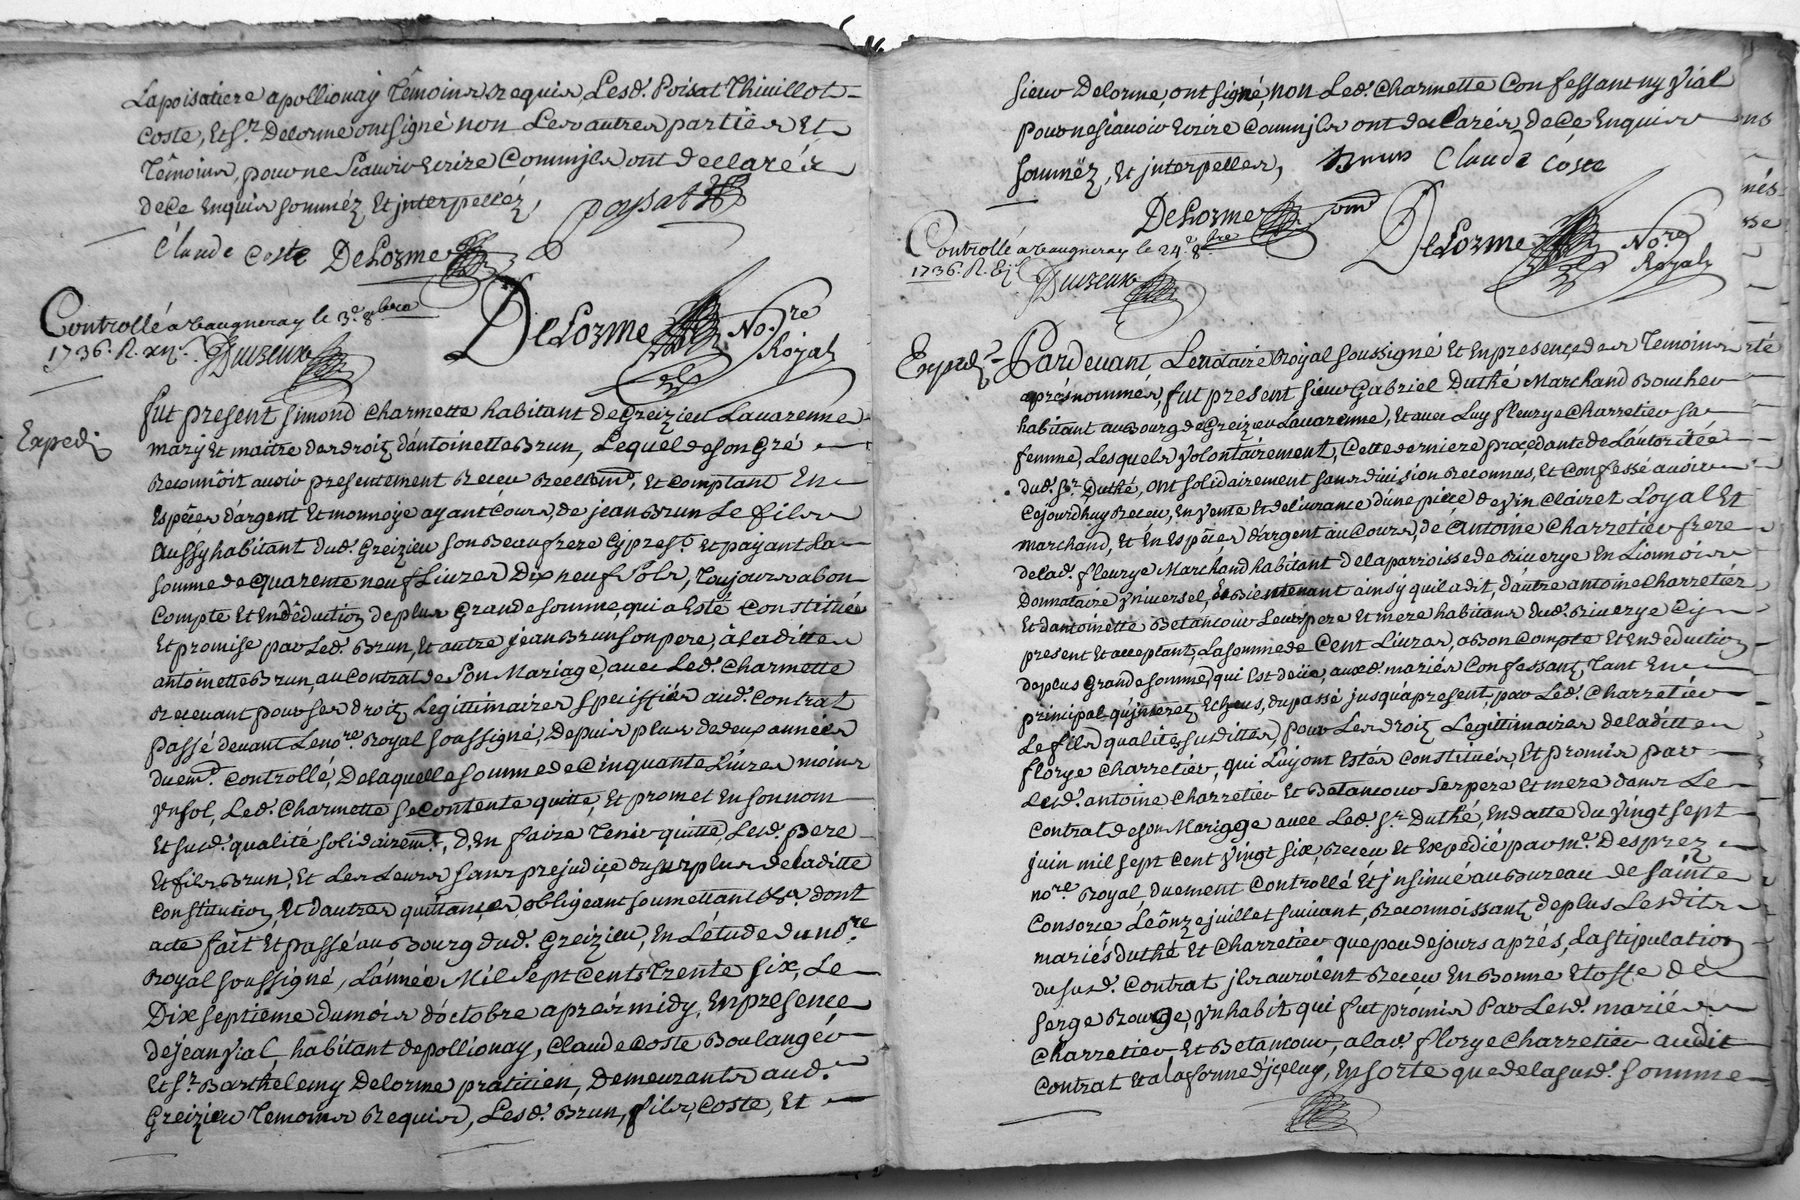 Lapoisatiere a pollionay Témoins requis Lesd. Poisat Thivillot
Coste, Et Sr. Delorme ont signé non Les autres parties Et
Témoins, pour ne Scavoir Ecrire Comm'jls ont declarés
de Ce Enquis sommés Et jnterpellés,
poysat
Claude Coste DeLorme
Controllé a vaugneray le 3e. 8bre
1736. R. xijs. Duizeux
DeLorme No.re
Royal
Exped.
fut présent Simond Charmette habitant de Greizieu Lavarenne
mary Et maître des droits d'antoinette Brun, Lequel de son Gré
Reconnôit avoir presentement Receu Reellemt. Et Comptant En
Espèces d'argent Et monnoye ayant Cours, de jean Brun Le fils
Aussy habitant dud. Greizieu son Beaufrere Cy prest. Et payant La
somme de quarente neuf Livres Dix neuf Sols, Toujours a bon
Compte Et En déduction de plus Grande somme, qui a Esté Constituée
Et promise par Led. Brun, Et autre jean Brun son pere, à laditte
antoinette Brun, au Contrat de Son Mariage, avec Led. Charmette
Recevant pour ses droits Legitimaires speciffiés aud. Contrat
passé devant Le nore. Royal soussigné, Depuis plus de deux années
duemt. Controllé, De laquelle somme de Cinquante Livres moins
Un sol, Led. Charmette se Contente quitte, Et promet En son nom
Et susd. qualité solidairemt., D'En faire Tenir quitte, Lesd. pere
Et fils Brun, Et Les Leurs sans préjudice du surplus de laditte
Constitution, Et d'autres quittances, obligeant soumettant &a. dont
acte fait Et passé au Bourg dud. Greizieu, En L'étude du nore.
Royal soussigné, L'année Mil Sept Cents Trente Six, Le
Dix septième du mois d'octobre après midy, En presence
de jean Vial habitant de pollionay, Claude Coste Boulangér
Et Sr. Barthelemy Delorme praticien, Demeurants aud.
Greizieu Temoins Requis, Lesd. Brun, fils, Coste, Et
Sieur Delorme, ont signé, non Led. Charmette Confessant ny Vial
pour ne Scavoir Ecrire Comm'jls ont declarés de Ce Enquis
sommés, Et jnterpellés, Brun Claude Coste
DeLorme
DeLorme No.re
Royal
Controllé a vaugneray le 24e. 8bre
1736. R.
Duizeux
Exped.
Pardevant Le notaire Royal soussigné Et En presence des Temoins
aprés nommés, fut present sieur Gabriel Duthé Marchand Boucher
habitant au Bourg de Greizieu Lavarenne, Et avec Luy fleurye Charretier sa
femme, Lesquels Volontairement, Cette derniere procedante de L'autoritée
dud. Sr. Duthé, ont solidairement sans division Reconnus, Et Confessé avoir
Cejourdhuy Receu, En Vente Et delivrance d'une pièce de Vin Clairet Loyal Et
marchand, Et En Especes d'argent au Cours, de Antoine Charretier frere
de lad. fleurye Marchand habitant de la parroisse de Riverye En Lionnois
Donnataire Vniversel, Et Bientenant ainsy qu'il a dit, d'autre antoine Charretier
Et d'antoinette Betancour Leurs pere Et mere habitans dud. Riverye Cy
present Et acceptant, La somme de Cent Livres, a Bon Compte Et En déduction
de plus Grande somme, qui Est deüe, auxd. mariés Confessant, Tant En
principal qu'jnterets Echeus, du passé jusqu'a present, par Led. Charretier
Le fils qualités susdittes, pour Les droits Legitimaires de laditte
florye Charretier, qui Luy ont Estés Constitués, Et promis par
Lesd. antoine Charretier Et Betancour ses pere Et mere dans Le
Contrat de son Mariage avec Led. Sr. Duthé, En datte du Vingt sept
juin mil sept Cent Vingt six, Receu Et Expedié par me. Desprez
nore. Royal, duement Controllé Et jnsinué au Bureau de sainte
Consorce Le onze juillet suivant, Reconnoissant de plus Lesdits
mariés Duthé Et Charretier que peu de jours aprés, La stipulation
du susd. Contrat jls auroient Receu En Bonne Etoffe de
serge Rouge, Un habit qui fut promis Par Lesd. mariés
Charretier Et Betancour, a lad. florye Charretier audit
Contrat Et a la forme d'jceluy, En sorte que de la susd. somme